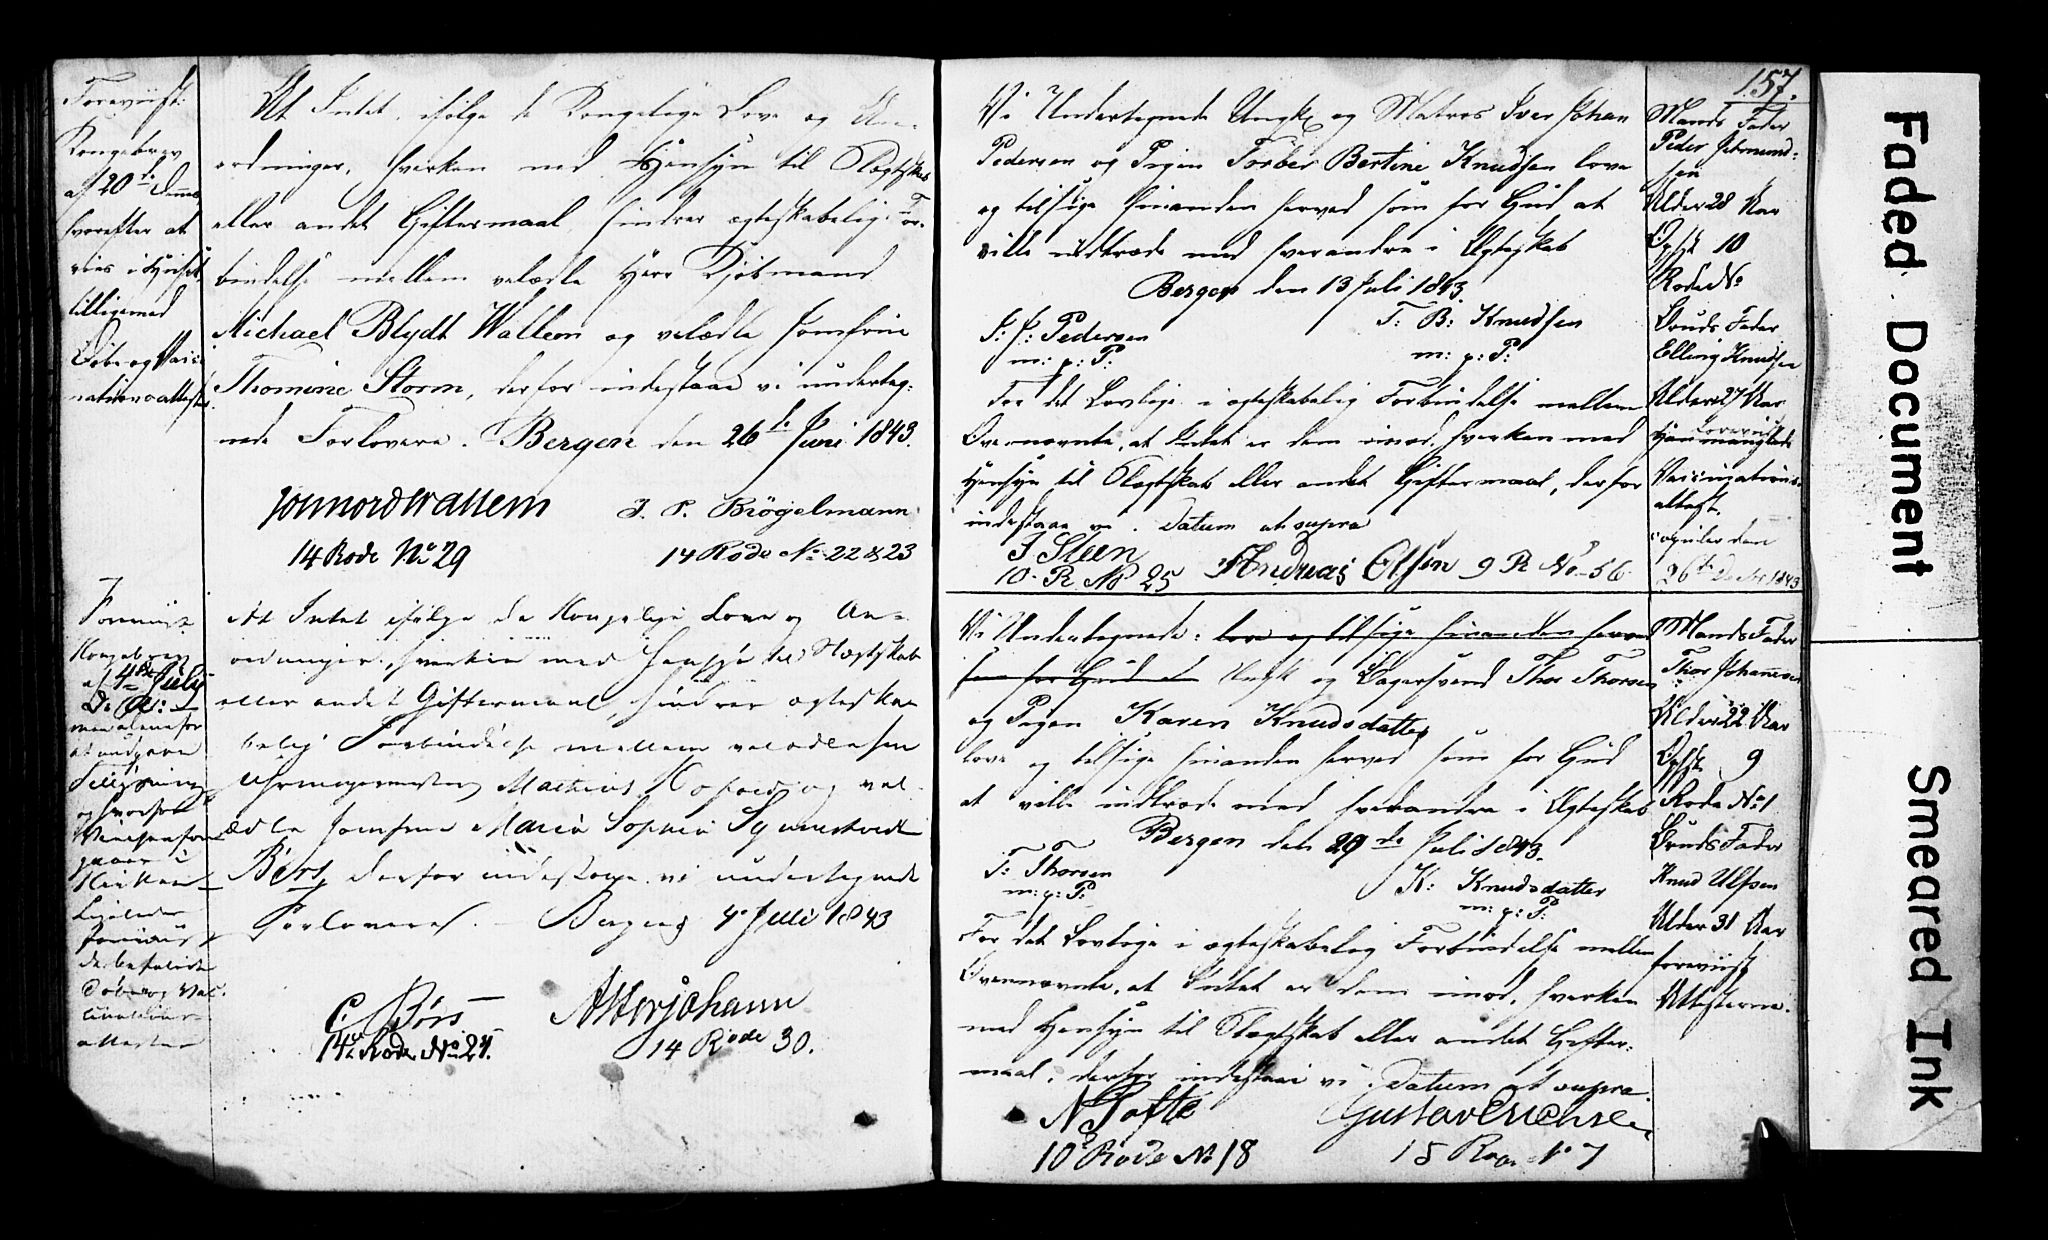 Foreviist:
Kongebrev
af 20de Dennes
hvorefter at
vies i Huset
tilligemed
Døbe og Vacci
nationsattester
At Intet, ifølge de Kongelige Love og An-
ordninger, hverken med Hensyn til Slægtskab
eller andet Giftermaal, hindrer ægteskabelig For-
bindelse mellem velædle Herr Kjøbmand
Michael Blydt Wallem og velædle Jomfrue
Thomine Storm, derfor indestaae vi underteg-
nede Forlovere. Bergen den 26de Juni 1843.
Wallem J. P. Brögelmann
14 Rode No 29 14 Rode No 22 & 23
Foreviist
Kongebrev
af 4de July
D: A:
men alene for
at undgaae
Tillysning
og hvorfor
Vielsen fore
gaaer i
Kirken
Ligeledes
foreviist
de befalede
Døbe og Vac
cinations
attester
At Intet ifølge de Kongelige Love og An-
ordninger, hverken med Hensyn til Slægtskab
eller andet Giftermaal, hindrer ægteska-
belig Forbindelse mellem velædle
Uhrmagermester Mathias og vel-
ædle Jomfrue Maria Sophia
Børs, derfor indestaae vi undertegnede
Forlovere. Bergen 4 Juli 1843
C. Børs
14de Rode No 24. 14 Rode 30.
157.
Vi Undertegnede Ungk. og Matros Iver Johan
Pedersen og Pigen Torber Bertine Knudsen love
og tilsige hinanden herved som for Gud at
ville indtræde med hverandre i Ægteskab
Bergen den 13 Juli 1843.
I: J: Pedersen T: B: Knudsen
m: p: P: m: p: P:
For det Lovlige i ægteskabelig Forbindelse mellem
Ovennævnte, at Intet er dem imod, hverken med
Hensyn til Slægtskab eller andet Giftermaal, derfor
indestaae vi. Datum ut supra
J Steen Andreas Olsen 9 R No 56
10 R No 25
Mands Fader
Peder
sen
Alder 28 Aar
Opht 10
Rode No
Bruds Fader
Elling Knudsen
Alder 27 Aar
Han manglede
Foreviist
Vaccinations-
attest.
26de 1843
Vi Undertegnede: love og tilsige hinanden herved
som for Gud at Ungk og Bagersvend Thor Thorsen
og Pigen Karen Knudsdatter
love og tilsige hinanden herved som for Gud
at ville indtræde med hverandre i Ægteskab
Bergen den 29de Juli 1843.
T: Thorsen K: Knudsdatter
m: p: P: m: p: P:
For det Lovlige i ægteskabelig Forbindelse mellem
Ovennævnte, at Intet er dem imod, hverken
med Hensyn til Slægtskab eller andet Gifter-
maal, derfor indestaae vi. Datum ut supra.
N Tofte Gustav Erichsen
10 Rode No 18 15 Rode No 7
Mands Fader
Thor Johannesen
Alder 22 Aar
Opht 9
Rode No 1
Bruds Fader
Knud Ulfsen
Alder 31 Aar
foreviist
Attesterne.
Faded Document
Smeared Ink